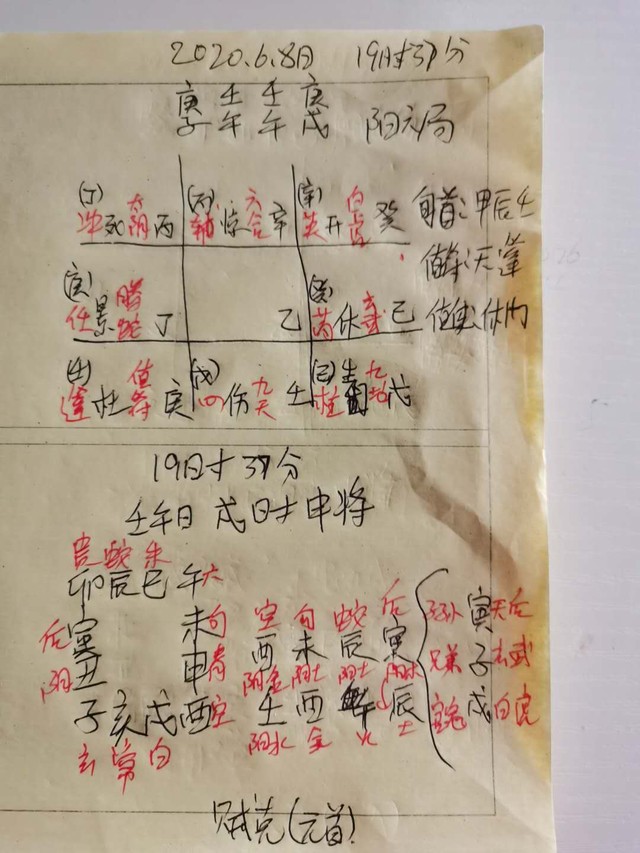 2020.6.8日 19时37分
庚 壬 壬 庚
子 午 午 戌 阳六局
(丁) 太 (丙) 六 (辛) 白
冲死阴丙 辅惊合辛 英开虎癸 旬首:甲辰壬
值符:天蓬
(庚) 腾 (癸) 玄
任景蛇丁 乙 芮休武己 值使:休门
(壬) 值 (戊) 九 (己) 生 九
蓬杜符庚 心伤天壬 柱地戊
19时37分
壬午日 戌时 申将
贵蛇朱
卯辰巳午六
后寅 未勾 空勾蛇后 子孙寅天后
阴丑 申青 酉未辰寅 兄弟子玄武
阳金 阴土 阳土 阳木
子亥戌酉空 壬酉午辰 官鬼戌白虎
阳水 金 火 土
玄常白
贼克(元首)